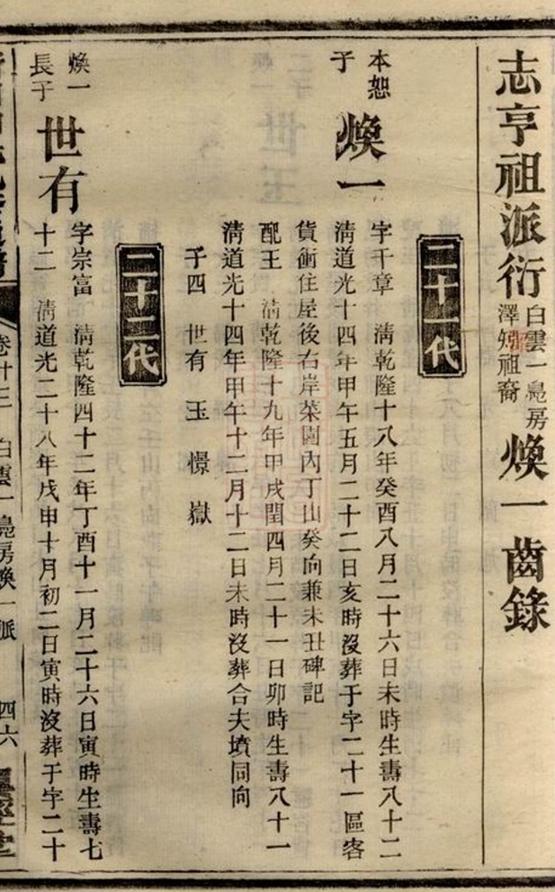 志亨祖派衍 白雲一鳧房 澤知祖裔 煥一齒錄
二十一代
本恕
子
煥一
字干章 淸乾隆十八年癸酉八月二十六日未時生壽八十二
淸道光十四年甲午五月二十二日亥時沒葬于字二十一區客
貨衝住屋後右岸菜園內丁山癸向兼未丑碑記
配王 淸乾隆十九年甲戌閏四月二十一日卯時生壽八十一
淸道光十四年甲午十二月十二日未時沒葬合夫墳同向
子四 世有 玉 憬 嶽
二十二代
煥一
長子
世有
字宗富 淸乾隆四十二年丁酉十一月二十六日寅時生壽七
十二 淸道光二十八年戊申十月初二日寅時沒葬于字二十
卷十三 白雲一鳧房煥一派 四六